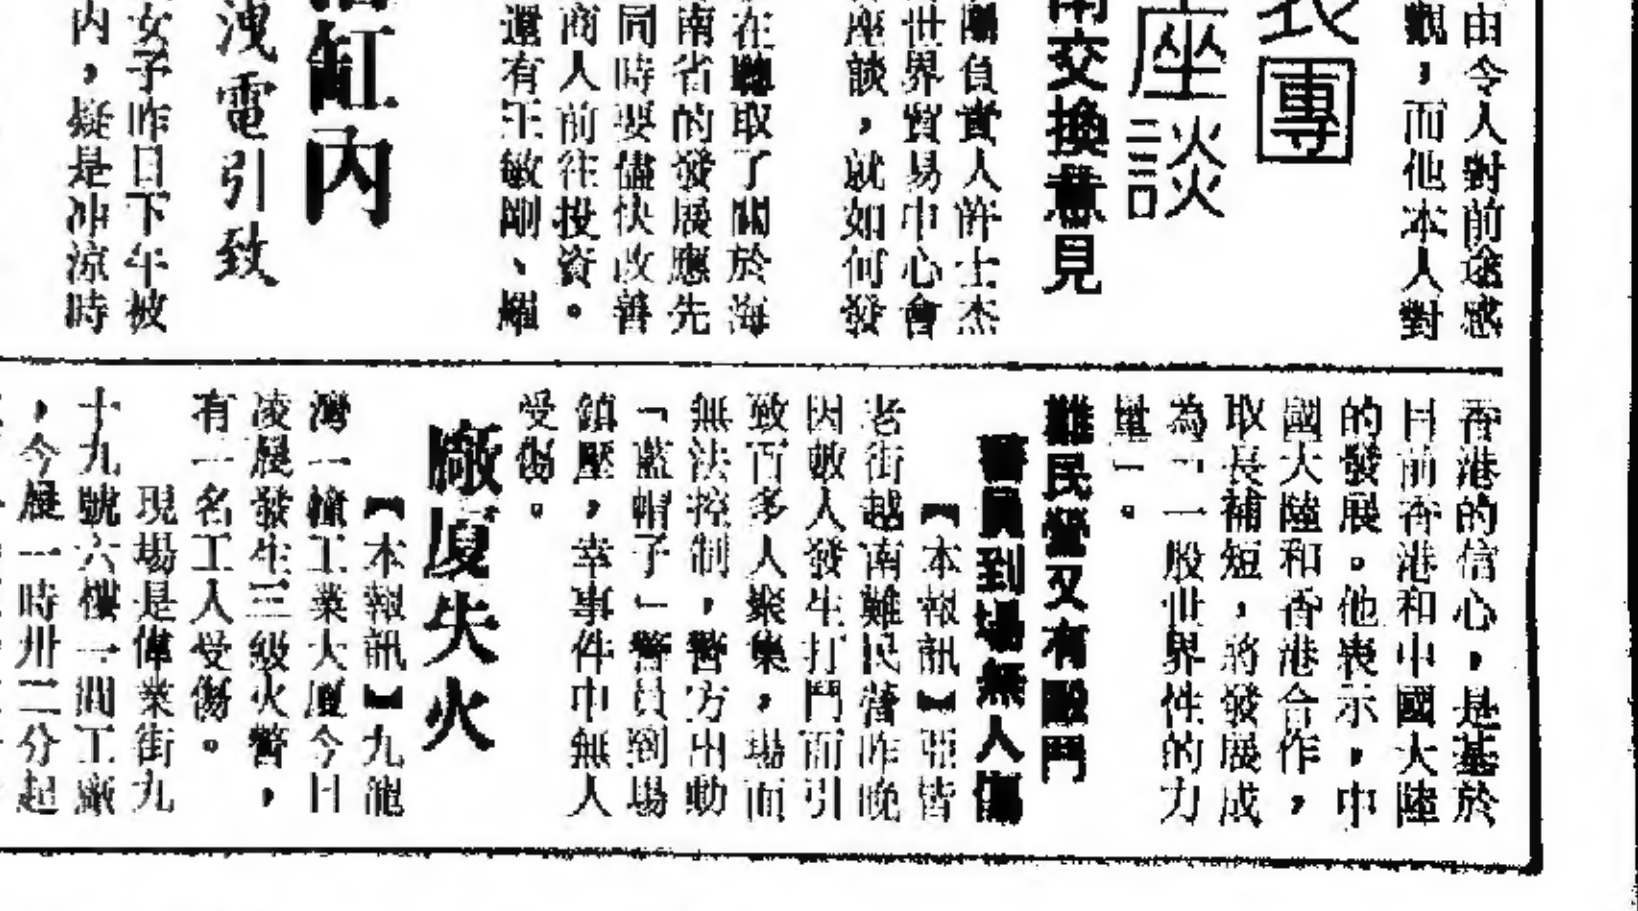 由令人對前途感
觀，而他本人對
表團
座談
南交換意見
剛負責人許士杰
世界貿易中心會
座談，就如何發
在聽取了關於海
南省的發展應先
同時要儘快改善
商人前往投資。
還有王敏剛、羅
缸內
洩電引致
女子昨日下午被
內，疑是冲涼時
香港的信心，是基於
目前香港和中國大陸
的發展。他表示，中
國大陸和香港合作，
取長補短，將發展成
為「一股世界性的力
量」。
難民營又有毆鬥
警員到場無人傷
【本報訊】亞皆
老街越南難民營昨晚
因數人發生打鬥而引
致百多人聚集，場面
無法控制，警方出動
「藍帽子」警員到場
鎮壓，幸事件中無人
受傷。
廠廈失火
【本報訊】九龍
灣一幢工業大廈今日
凌晨發生三級火警，
有一名工人受傷。
現場是偉業街九
十九號六樓一間工廠
，今晨一時卅二分起